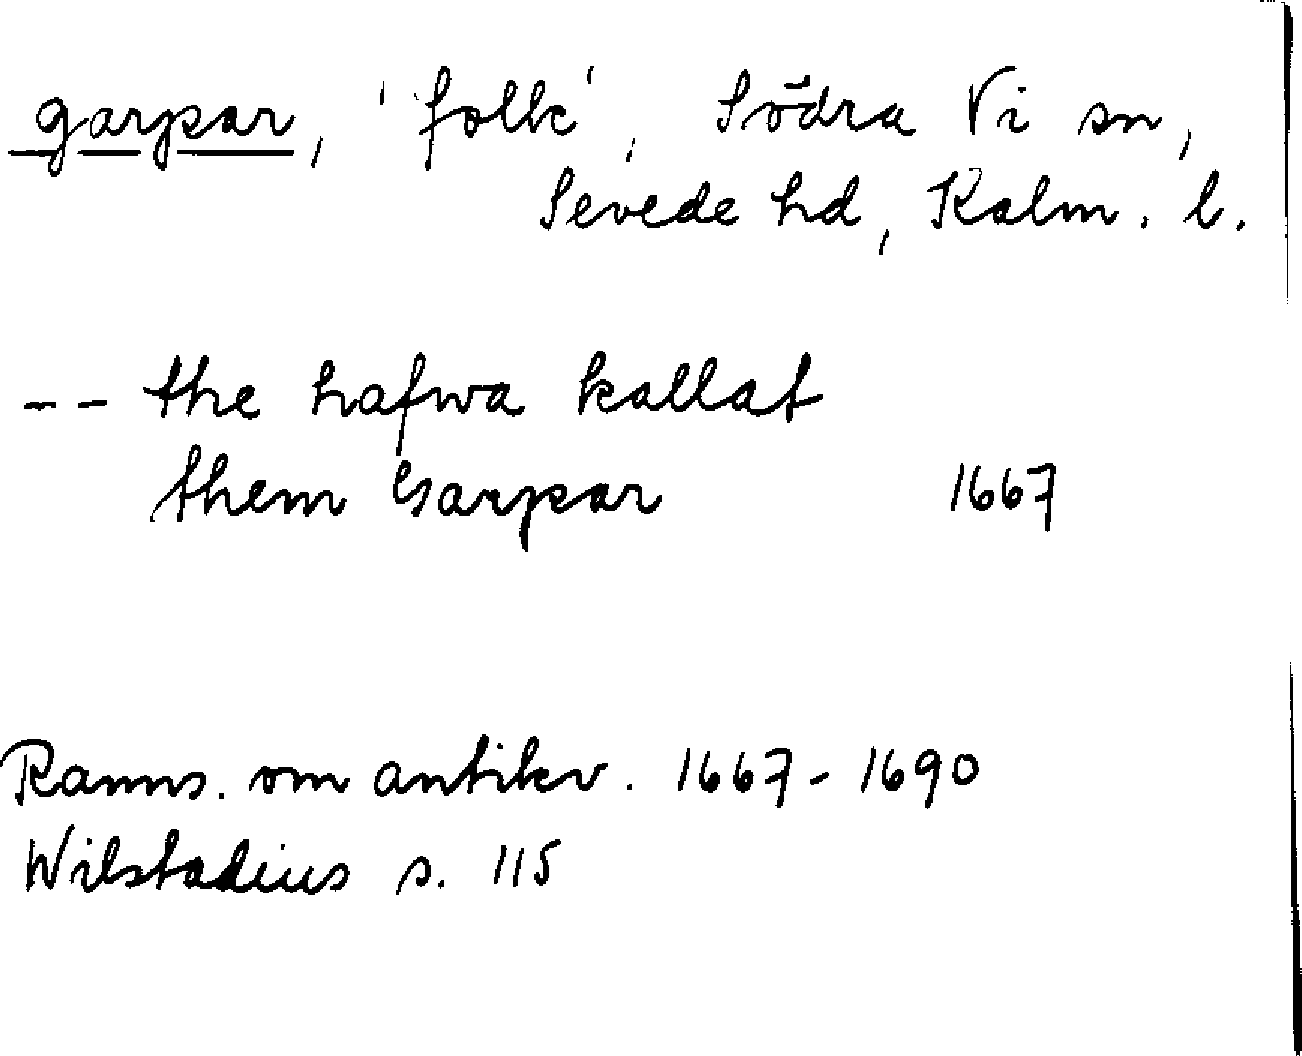 garpar, 'folk', Södra Vi sn,
Sevede hd, Kalm. l.
-- the hafwa kallat
them Garpar 1667
Ranns. om antikv. 1667-1690
Wilstadius s. 115